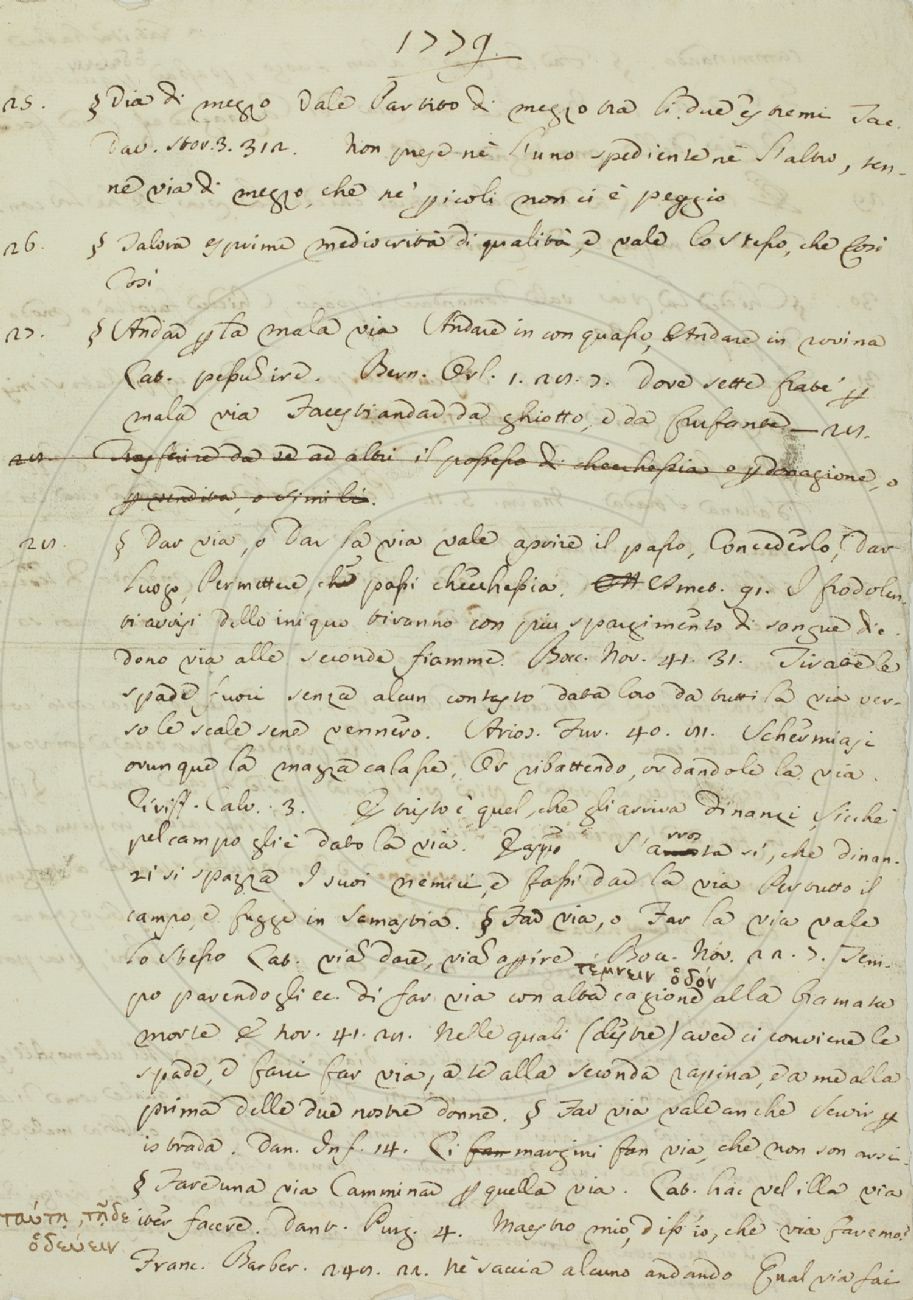 1779.
25. § Via di mezzo Vale Partito di mezzo tra li due estremi Tac.
Dav. Stor. 3. 312. Non prese nè l'uno spediente nè l'altro, ten-
ne via di mezzo, che ne' pericoli non ci è peggio
26. § Talora esprime mediocrità di qualità, e vale lo stesso, che Così
Così
27. § Andar per la mala via Andare in conquasso, Andare in rovina
Lat. pessum ire. Bern. Orl. 1. 7. Dove sette frate' per
mala via Facesti andar da ghiotto, e da furfante
Trasferire da se ad altri il possesso di checchessia o per donagione, o
per vendita, o simili.
28. § Dar via, o Dar la via vale aprire il passo, Concederlo, Dar
luogo, Permettere, che passi checchessia. Amet. 91. I frodolen-
ti avvisi dello iniquo tiranno con piu spargimento di sangue die-
dono via alle seconde fiamme. Bocc. Nov. 41. 31. Tirate le
spade fuori senza alcun contasto data loro da tutti la via ver-
so le scale sene vennero. Arios. Fur. 40. Schermiasi
ovunque la mazza calasse, Or ribattendo, or dandole la via.
Ciriff. Calv. 3. E tristo è quel, che gli arriva dinanzi, Sicchè
pel campo gli è dato la via. E appo S'arrosta sì, che dinan-
zi si spazza I suoi nemici, e fassi dar la via Per tutto il
campo, e fugge in Semastria. § Far via, o Far la via vale
lo stesso Lat. viam dare, viam aperire τέμνειν ὁδόν Bocc. Nov. 22. 7. Tem-
po parendogli ec. di far via con altra cagione alla bramata
morte E nov. 41. 28. Nelle quali (destre) aver ci conviene le
spade, e farci far via, a te alla seconda rapina, e a me alla
prima delle due nostre donne. § Far via vale anche Servir per
istrada. Dan. Inf. 14. Li margini fan via, che non son arsi.
§ Fare una via Camminar per quella via. Lat. hac vel illa via
iter facere. ταύτῃ, τῇδε ὁδεύειν Dant. Purg. 4. Maestro mio, diss'io, che via faremo?
Franc. Barber. 248. 22. Nè saccia alcuno andando Qual via fai